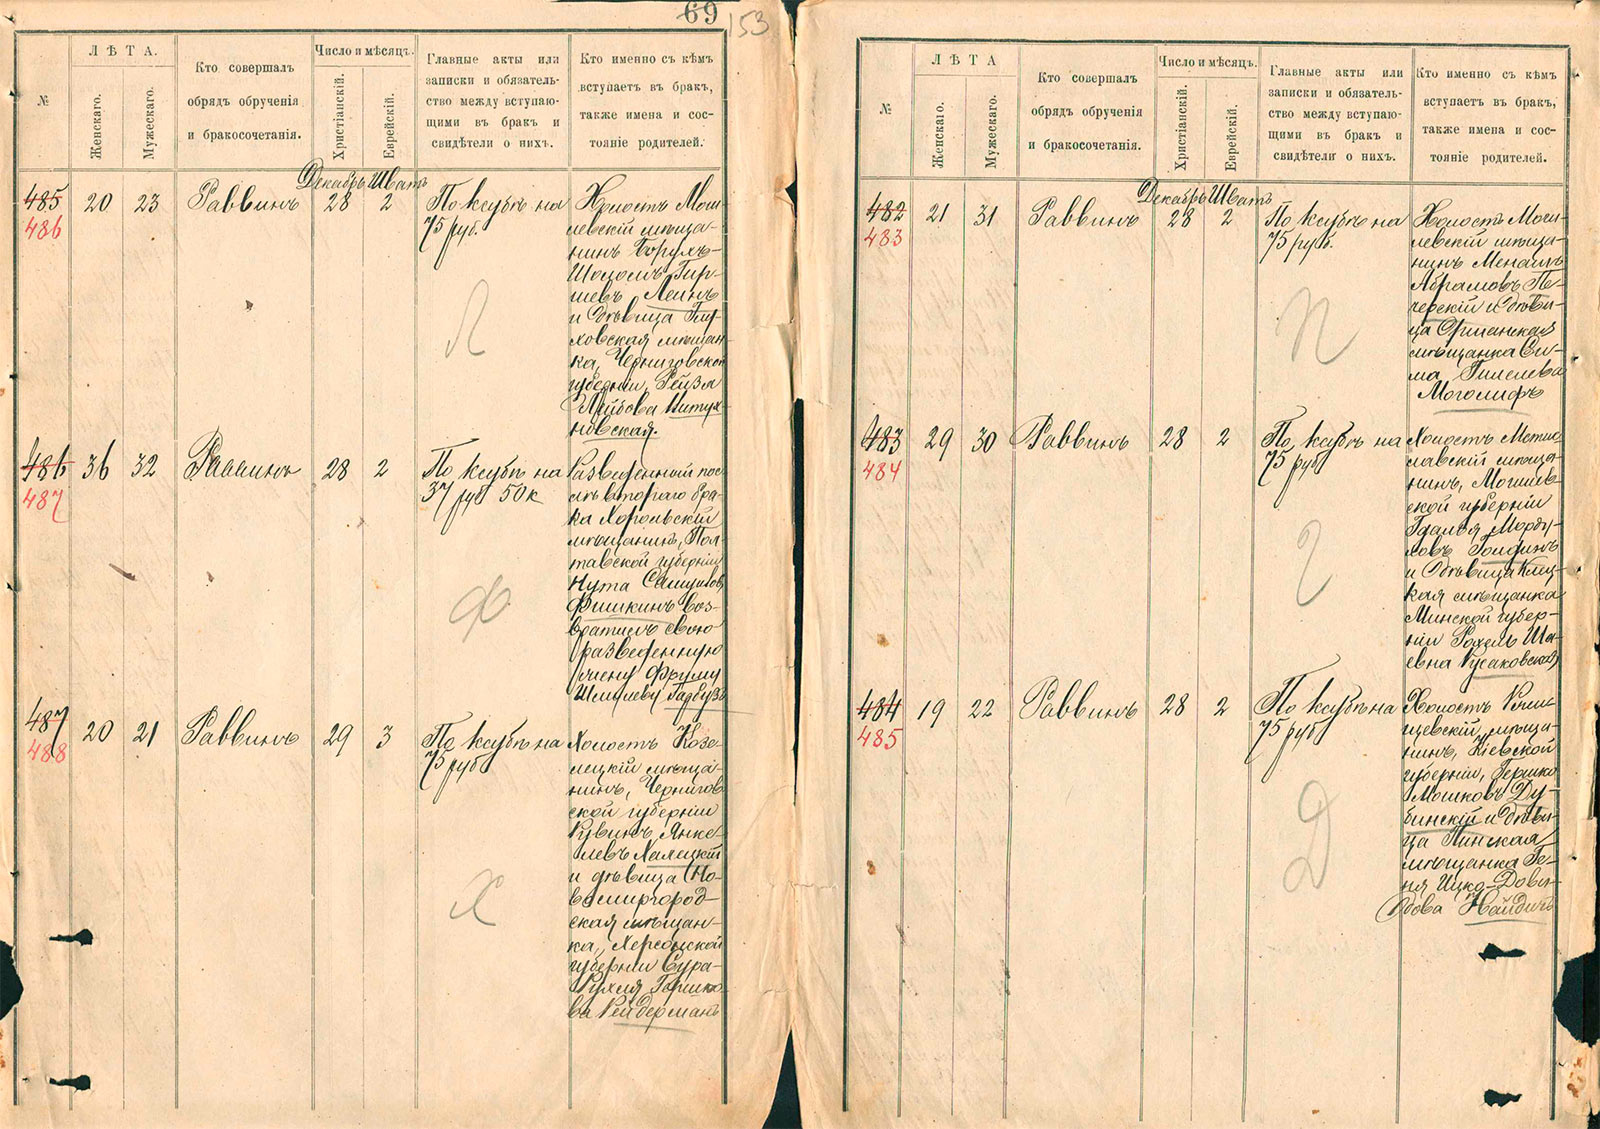 69 153
№
ЛѢТА.
Женскаго.
Мужескаго.
Кто совершалъ
обрядъ обрученія
и бракосочетанія.
Число и мѣсяцъ.
Христіанскій.
Еврейскій.
Главные акты или
записки и обязатель-
ство между вступаю-
щими въ бракъ и
свидѣтели о нихъ.
Кто именно съ кѣмъ
вступаетъ въ бракъ,
также имена и сос-
тояніе родителей.
Декабрь Шватъ
485 20 23 Раввинъ 28 2
486
По ксубѣ на
75 руб.
Л
Холостъ Моги-
левскій мѣща-
нинъ Борухъ-
Шоломъ Гир-
шевъ Леинъ
и дѣвица Глу-
ховская мѣщан-
ка, Черниговской
губерніи, Рейзя
Лейбова
новская.
486 36 32 Раввинъ 28 2
487
По ксубѣ на
37 руб 50 к
Ф
Разведенный пос-
лѣ второго бра-
ка Хорольскій
мѣщанинъ, Пол-
тавской губерніи
Нута Самуиловъ
Фишкинъ воз-
вратилъ свою
разведенную
жену Фруму
Шмулеву
487 20 21 Раввинъ 29 3
488
По ксубѣ на
75 руб
Х
Холостъ Козе-
лецкій мѣща-
нинъ, Чернигов-
ской губерніи
Рувинъ Янке-
левъ Халецкій
и дѣвица Но-
вомиргород-
ская мѣщан-
ка, Херсонской
губерніи Сура-
Рухля Гершко-
ва Рейдерманъ
№
ЛѢТА
Женскаго.
Мужескаго.
Кто совершалъ
обрядъ обрученія
и бракосочетанія.
Число и мѣсяцъ.
Христіанскій.
Еврейскій.
Главные акты или
записки и обязатель-
ство между вступаю-
щими въ бракъ и
свидѣтели о нихъ.
Кто именно съ кѣмъ
вступаетъ въ бракъ,
также имена и сос-
тояніе родителей.
Декабрь Шватъ
482 21 31 Раввинъ 28 2
483
По ксубѣ на
75 руб.
П
Холостъ Моги-
левскій мѣща-
нинъ Менаимъ
Абрамовъ Пе-
черскій и дѣви-
ца Оршанская
мѣщанка Си-
ма Гилелева
Моголифъ
483 29 30 Раввинъ 28 2
484
По ксубѣ на
75 руб
Г
Холостъ Мстис-
лавскій мѣща-
нинъ, Могилев-
ской губерніи
Гдалья Морду-
ховъ Голдинъ
и дѣвица Клец-
кая мѣщанка
Минской губер-
ніи Рохель Ша-
евна Русаковская
484 19 22 Раввинъ 28 2
485
По ксубѣ на
75 руб
Д
Холостъ Ржи-
щевскій мѣща-
нинъ, Кіевской
губерніи, Гершко
Мошковъ Ду-
бинскій и дѣви-
ца Пинская
мѣщанка Ге-
ня Ицко-Дови-
дова Найдичъ